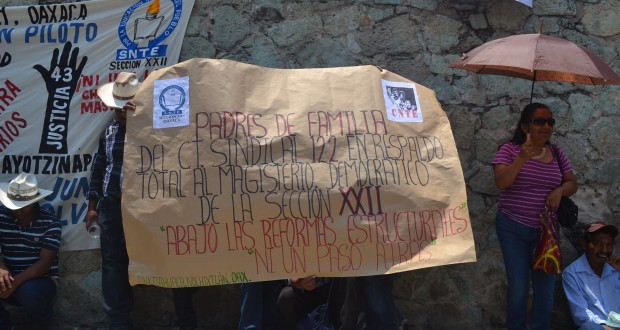 CT. OAXACA
N PILOTO
SNTE
SECCION XXII
43
JUSTICIA
AYOTZINAPA
CNTE
PADRES DE FAMILIA
DEL CT SINDICAL 122 EN RESPALDO
TOTAL AL MAGISTERIO DEMOCRATICO
DE LA SECCIÓN XXII
"ABAJO LAS REFORMAS ESTRUCTURALES"
"NI UN PASO ATRAS"